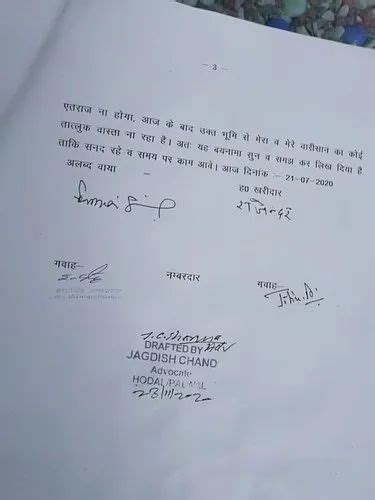 - 3 -
एतराज ना होगा, आज के बाद उक्त भूमि से मेरा व मेरे वारीसान का कोई
ताल्लुक वास्ता ना रहा है। अतः यह बयनामा सुन व समझ कर लिख दिया है
ताकि सनद रहे व समय पर काम आवे। आज दिनांक :- 21-07-2020
अलब्द वाया
ह0 खरीदार
राजेन्दर
गवाह-
नम्बरदार
गवाह-
J.C.Sharma
DRAFTED BY
JAGDISH CHAND
Advocate
HODAL/PALWAL